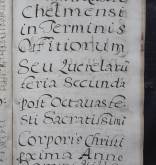 Chelmensi
in Terminis
Officiorum
Seu Querelarū
feria Secunda
post Octavas fe
sti Sacratissimi
Corporis Christi
pxima Anno